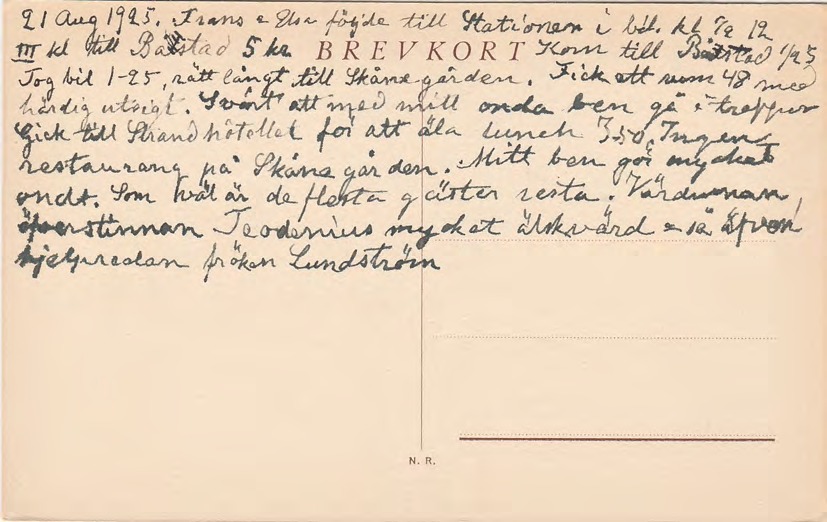 21 Aug 1925. Frans & Elsa följde till Stationen i bil. kl 1/2 12
III kl till Båstad 5 kr BREVKORT Kom till Båstad 1/25
Tog bil 1-25, rätt långt till Skånegården. Fick ett rum 48 med
härdig utsigt. Svårt att med mitt onda ben gå i trappor
Gick till Strandhôtellet för att äta lunch 3.50. Ingen
restaurang på Skånegården. Mitt ben gör mycket
ondt. Som väl är de flesta gäster resta. Värdinnan,
öfverstinnan Teodenius mycket älskvärd & så äfven
hjelpredan fröken Lundström
N. R.